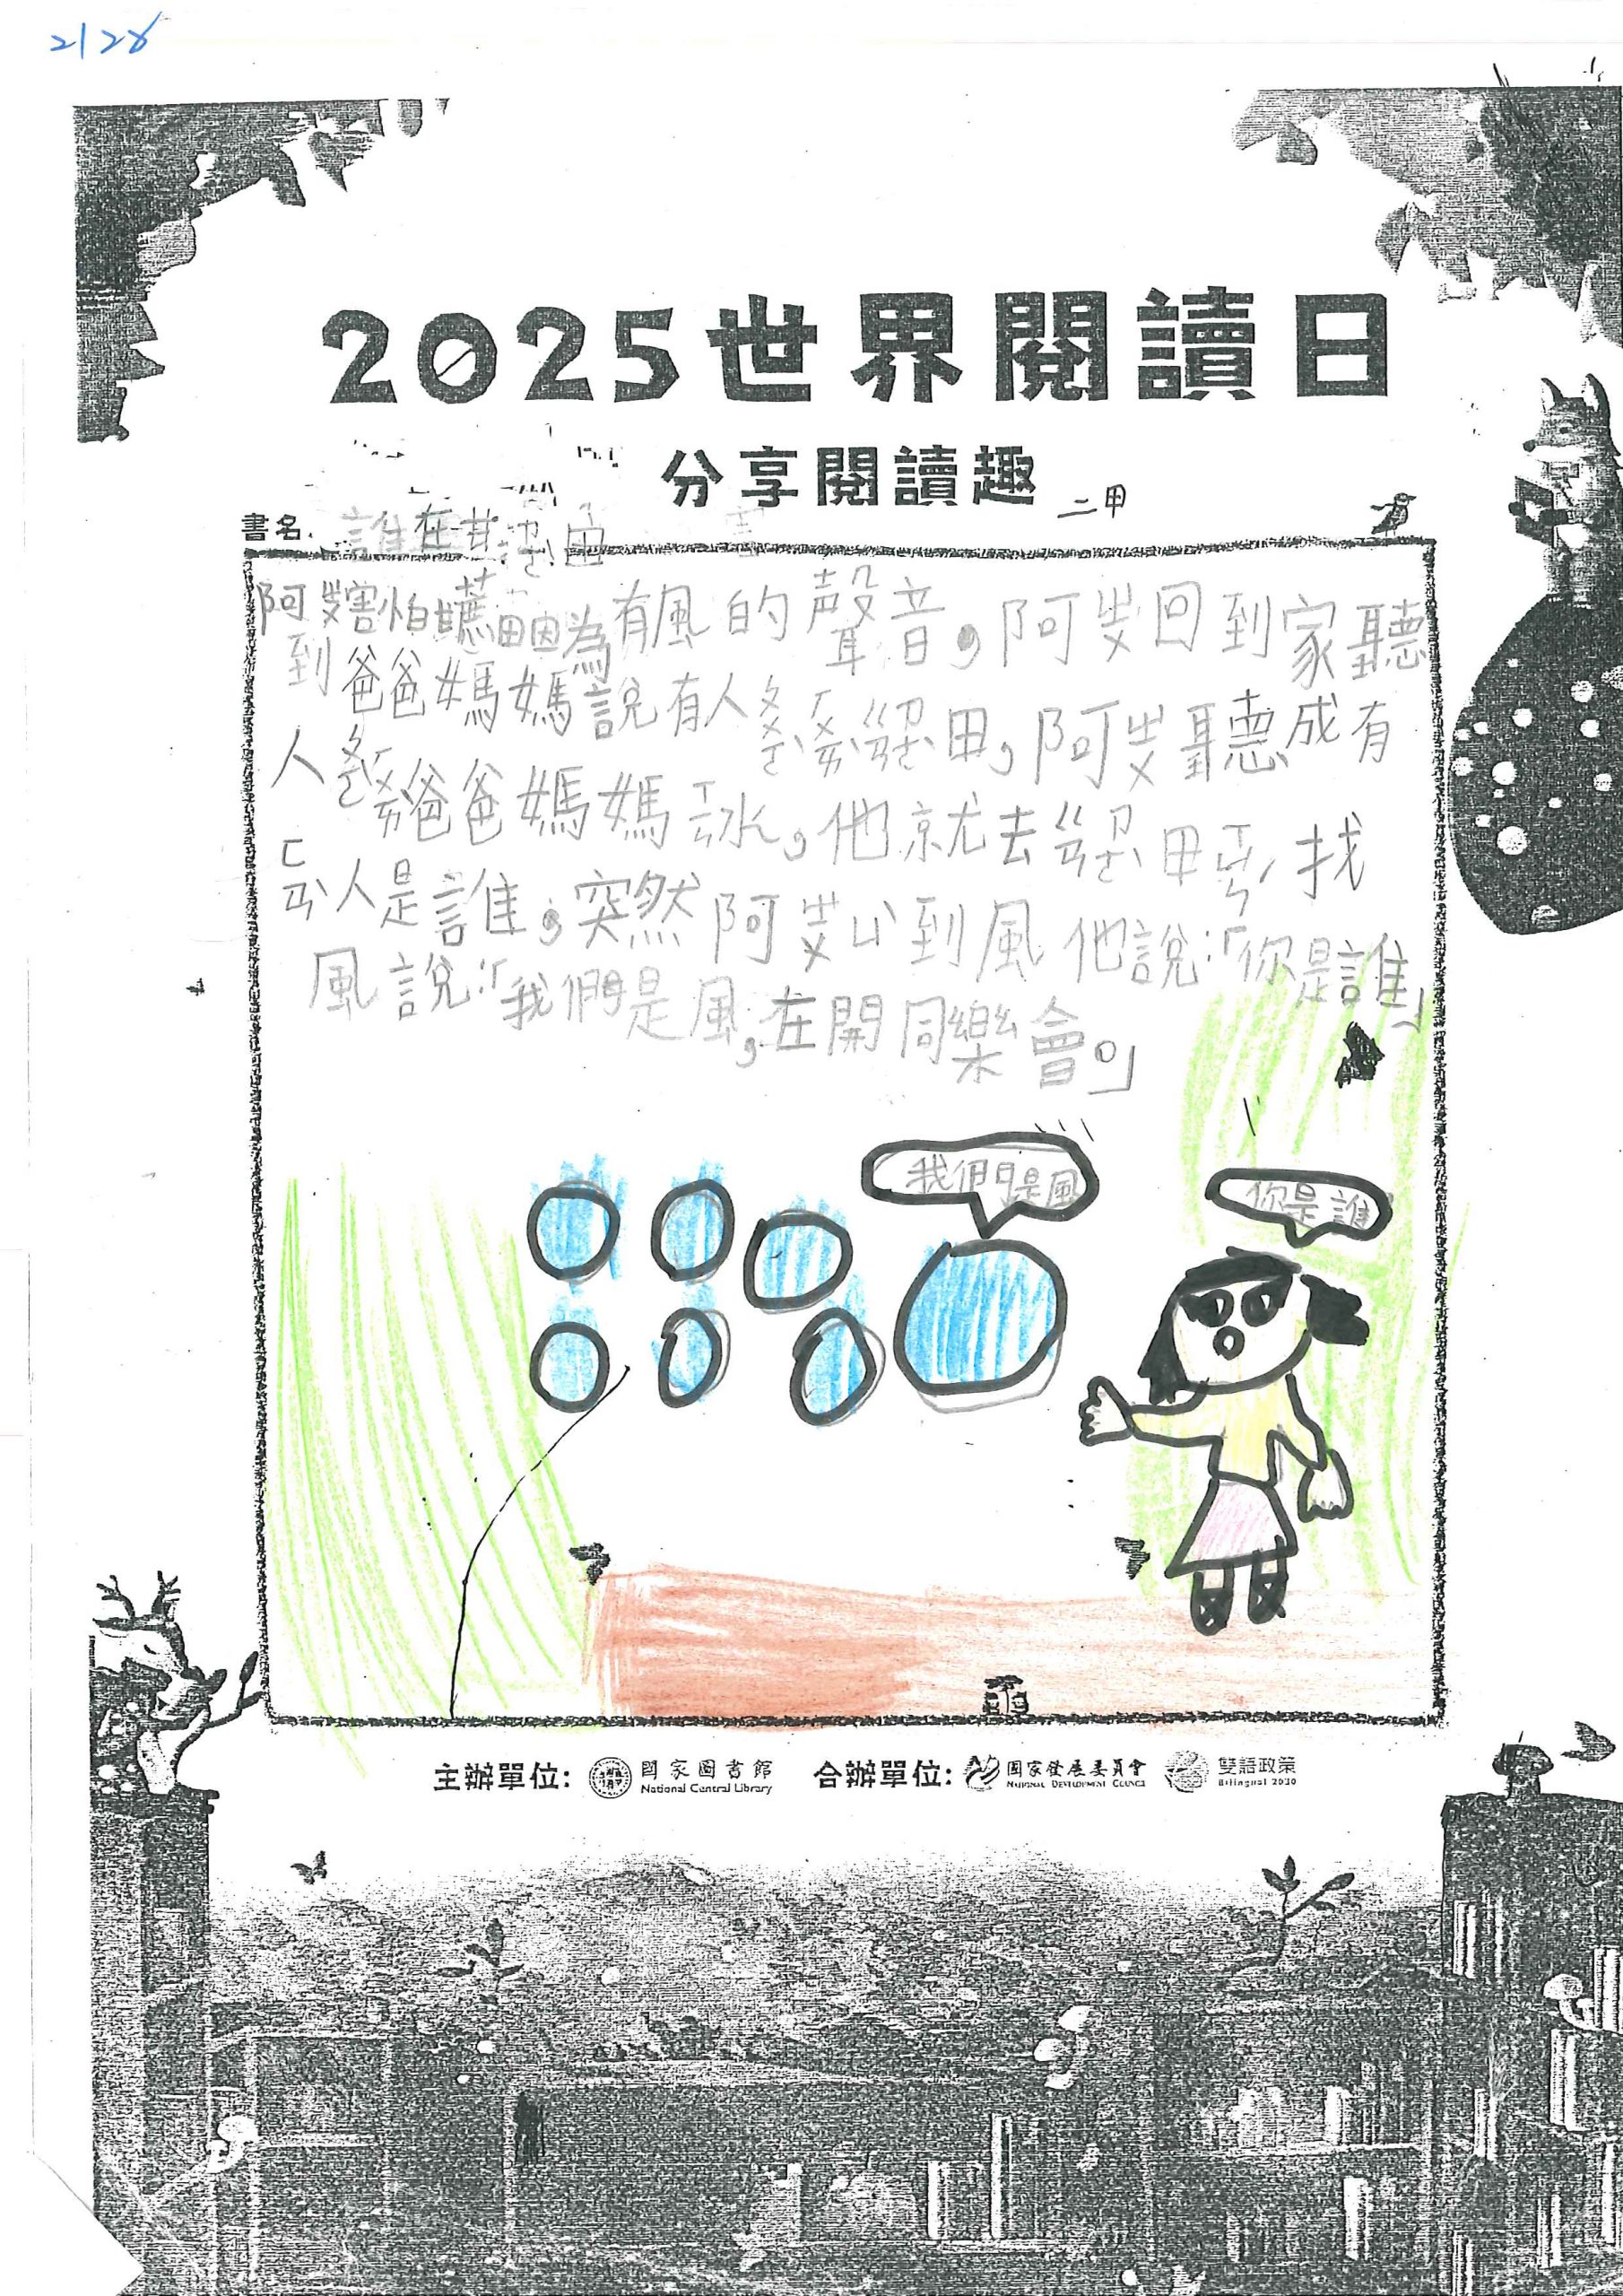 2128
2025世界閱讀日
分享閱讀趣
二甲
書名:誰在蔗田
阿ㄓㄨ害怕蔗田因為有風的聲音,阿ㄓㄨ回到家聽
到爸爸媽媽說有人在ㄍㄢ ㄓㄜˋ田,阿ㄓㄨ聽成有
人 爸爸媽媽 冰,他就去ㄍㄢ ㄓㄜˋ田 找
ㄈㄢˋ人是誰,突然阿ㄓㄨ 到風他說:「你是誰」
風說:「我們是風,在開同樂會。」
我們是風
你是誰
主辦單位: 國家圖書館 National Central Library 合辦單位: 國家發展委員會 National Development Council 雙語政策 Bilingual 2030